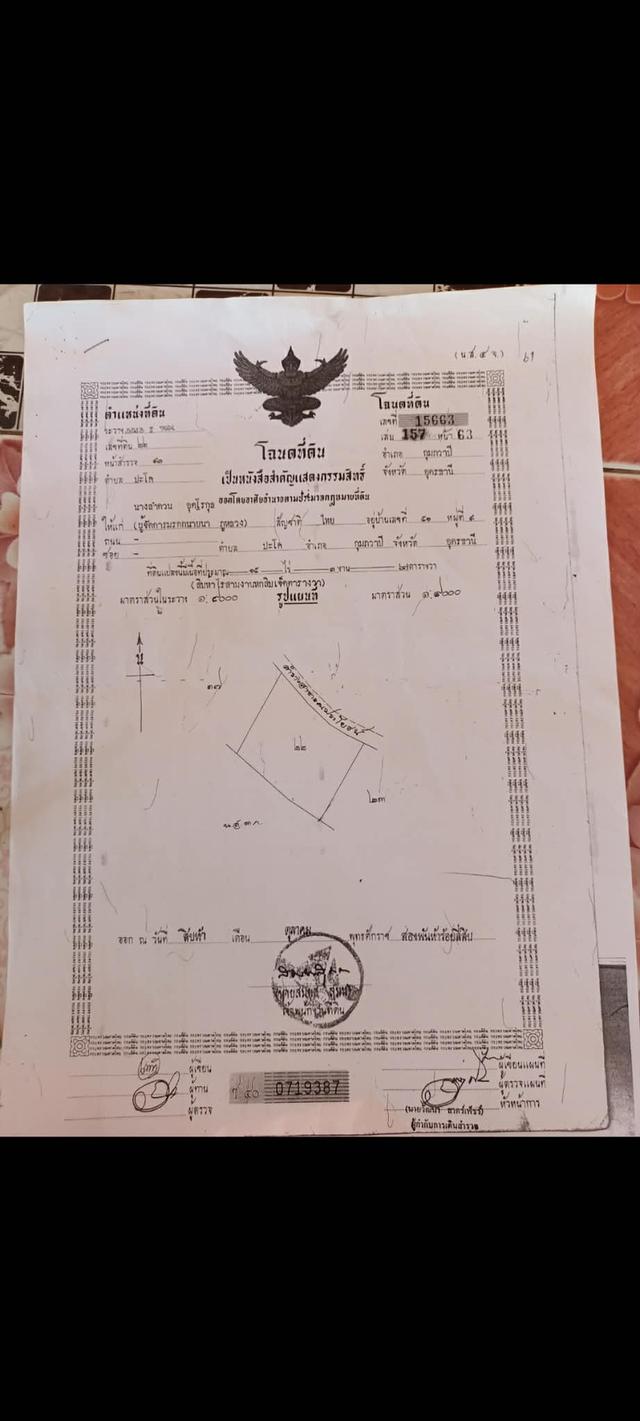 (น.ส.๔ จ.) ๖1
ตำแหน่งที่ดิน
ระวาง
เลขที่ดิน ๒๒
หน้าสำรวจ
ตำบล ปะโค
โฉนดที่ดิน
เลขที่ 15663
เล่ม 157 หน้า 63
อำเภอ กุมภวาปี
จังหวัด อุดรธานี
โฉนดที่ดิน
เป็นหนังสือสำคัญแสดงกรรมสิทธิ์
ออกโดยอาศัยอำนาจตามประมวลกฎหมายที่ดิน
นางลำดวน
ให้แก่ (ผู้จัดการมรดกนายนา ภูหลวง) สัญชาติ ไทย อยู่บ้านเลขที่ ๔๑ หมู่ที่ ๙
ถนน -
ซอย - ตำบล ปะโค อำเภอ กุมภวาปี จังหวัด อุดรธานี
ที่ดินแปลงนี้มีเนื้อที่ประมาณ ๑๕ ไร่ ๓ งาน ตารางวา
(สิบห้าไร่สามงานหกสิบเจ็ดตารางวา)
มาตราส่วนในระวาง ๑:๔๐๐๐ รูปแผนที่ มาตราส่วน ๑:๔๐๐๐
น
๑๗
๒๒
๒๓
น.ส.๓ก.
ออก ณ วันที่ สิบห้า เดือน ตุลาคม พุทธศักราช สองพันห้าร้อยสี่สิบ
เจ้าพนักงานที่ดิน
ผู้เขียน
ผู้ทาน
ผู้ตรวจ
๔๐ 0719387
ผู้เขียนแผนที่
ผู้ตรวจแผนที่
หัวหน้าการ
ผู้กำกับการเดินสำรวจ